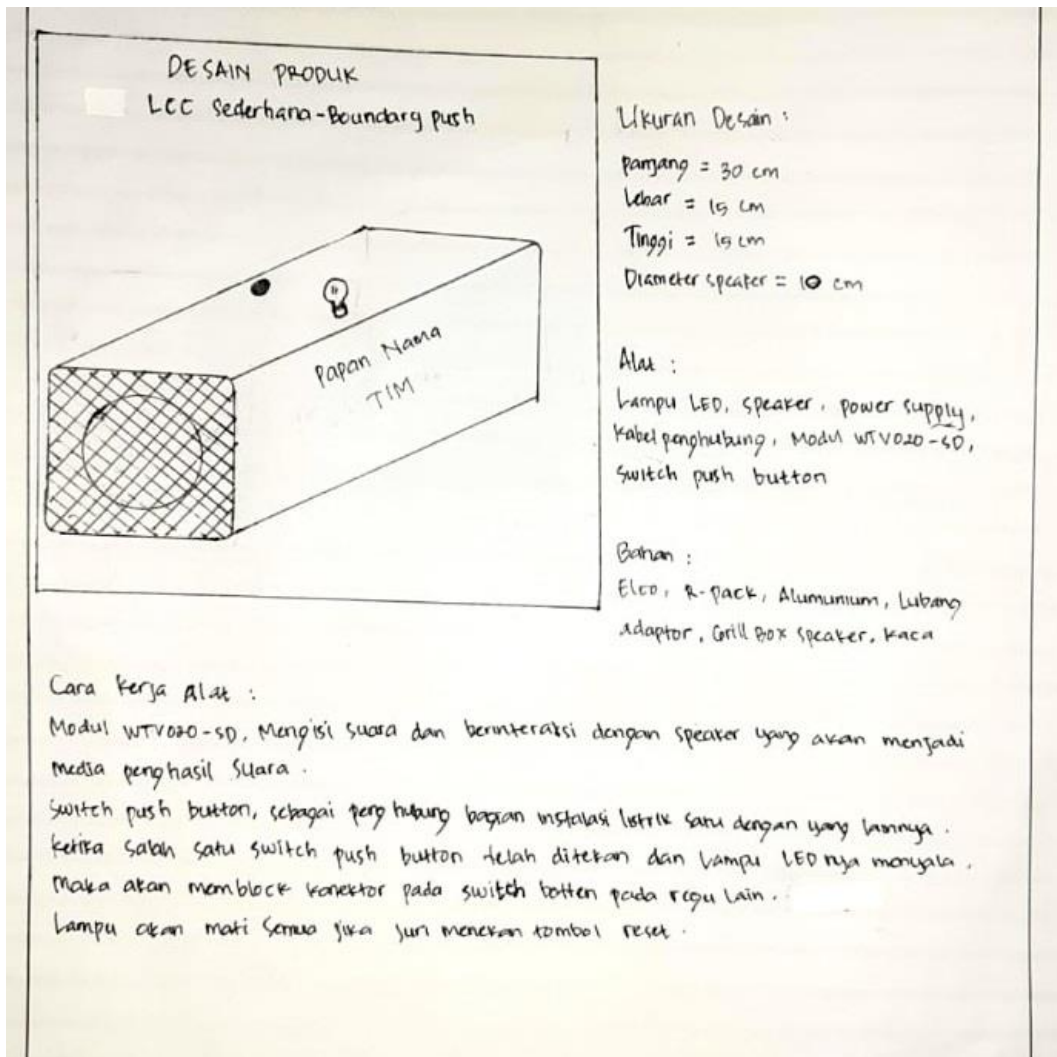 DESAIN PRODUK
LCC Sederhana-Boundary push
Papan Nama
TIM
Ukuran Desain :
panjang = 30 cm
Lebar = 15 cm
Tinggi = 15 cm
Diameter speaker = 10 cm
Alat :
Lampu LED, speaker, power supply,
Kabel penghubung, Modul WTV020-SD,
Switch push button
Bahan :
Elco, R-pack, Alumunium, Lubang
adaptor, Grill Box speaker, Kaca
Cara kerja Alat :
Modul WTV020-SD, Mengisi suara dan berinteraksi dengan speaker yang akan menjadi
media penghasil suara.
Switch push button, sebagai penghubung bagian instalasi listrik satu dengan yang lainnya.
ketika salah satu switch push button telah ditekan dan Lampu LED nya menyala.
maka akan memblock konektor pada switch botten pada regu lain.
Lampu akan mati semua jika juri menekan tombol reset.